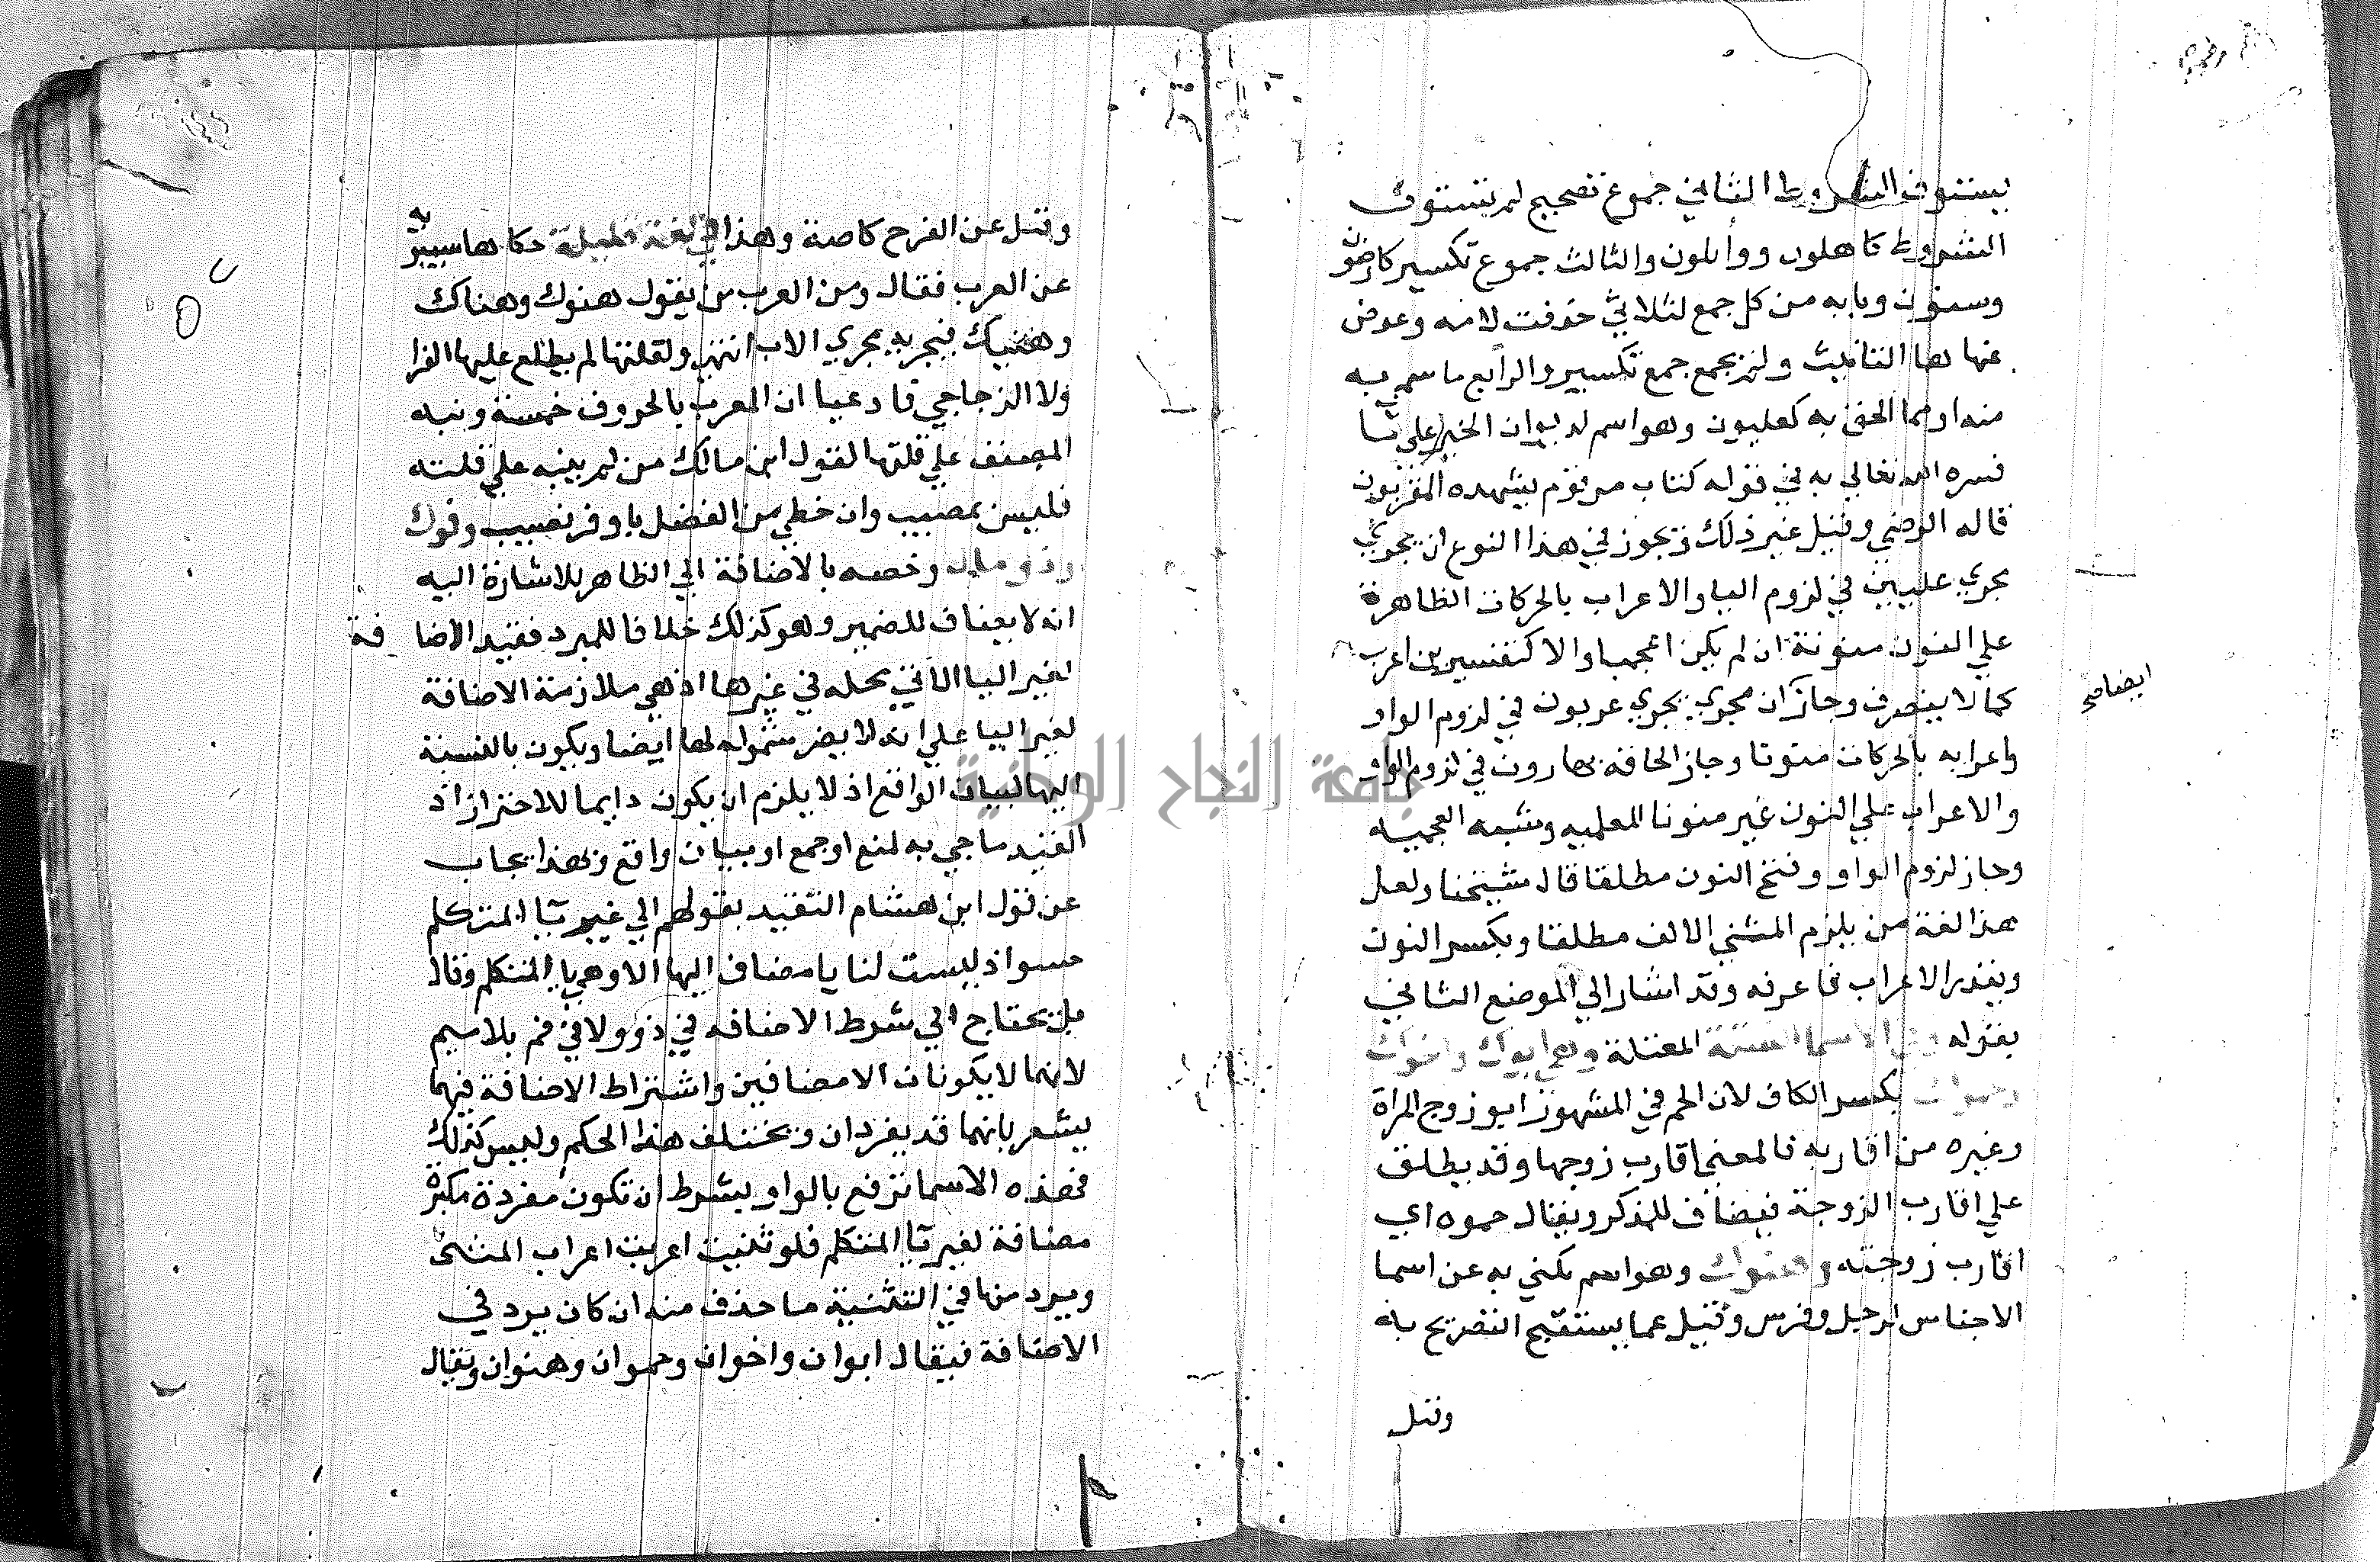 يستوف الشروط الثاني جموع تصحيح لم تستوف
الشروط كاهلون ووابلون والثالث جموع تكسير كارضون
وسنون وبابه من كل جمع لثلاثي حذفت لامه وعوض
عنها ها التانيث ولم يجمع جمع تكسير والرابع ما سمي به
منه او مما الحق به كعليون وهو اسم لديوان الخير على ما
فسره الله تعالى به في قوله كتاب مرقوم يشهده المقربون
قاله الرضي وقيل غير ذلك ويجوز في هذا النوع ان يجري
مجري عليين في لزوم اليا والاعراب بالحركات الظاهرة
علي النون منونة ان لم يكن اعجميا والا كقنسرين اعرب
كما لا ينصرف وجاز ان يجري مجري عربون في لزوم الواو
واعرابه بالحركات منونا وجاز الحاقه بهارون في لزوم الواو
والاعراب علي النون غير منونا للعلميه وشبه العجميه
وجاز لزوم الواو وفتح النون مطلقا قال شيخنا ولعل
هذا لغة من يلزم المثني الالف مطلقا ويكسر النون
ويقدر الاعراب فاعرفه وقد اشار الي الموضع الثاني
بقوله وفي الاسما الستة المعتلة وهي ابوك واخوك
وحموك بكسر الكاف لان الحم في المشهور ابو زوج المراة
وغيره من اقاربه فالمعني اقارب زوجها وقد يطلق
علي اقارب الزوجة فيضاف للمذكر ويقال حموه اي
اقارب زوجته وهنوك وهو اسم يكني به عن اسما
الاجناس لرجل وفرس وقيل عما يستقبح التصريح به
وقيل
ايضا صح
وقيل عن الفرج خاصة وهذا في لغة قليلة حكاها سيبويه
عن العرب فقال ومن العرب من يقول هنوك وهناك
وهنيك فيجريه مجري الاب انتهي ولقلتها لم يطلع عليها الفرا
ولا الزجاجي فادعيا ان المعرب بالحروف خمسة ونبه
المصنف علي قلتها لقول ابن مالك من لم ينبه علي قلته
فليس بمصيب وان حظي من الفضل باوفر نصيب وفوك
وذو مال وخصه بالاضافة الي الظاهر للاشارة اليه
انه لا يضاف للضمير وهو كذلك خلافا للمبرد فقيد الاضافة
لغير اليا الاتي محله في غيرها اذ هي ملازمة الاضافة
لغير اليا علي انه لا يضر شموله لها ايضا ويكون بالنسبة
اليها لبيان الواقع اذ لا يلزم ان يكون دايما للاحتراز اذ
القيد ما جي به لمنع او جمع او بيان واقع وبهذا يجاب
عن قول ابن هشام التقييد بقولهم الي غير يا المتكلم
حسو اذ ليست لنا يا مضاف اليها الا وهي يا المتكلم وقال
بل يحتاج الي شرط الاضافه في ذو ولا في فم بلا ميم
لانهما لا يكونان الا مضافين واشتراط الاضافة فيهما
يشعر بانهما قد يفردان ويختلف هذا الحكم وليس كذلك
فهذه الاسما ترفع بالواو بشرط ان تكون مفردة مكبرة
مضافة لغير يا المتكلم فلو ثنيت اعربت اعراب المثني
ويرد منها في التثنية ما حذف منه ان كان يرد في
الاضافة فيقال ابوان واخوان وحموان وهنوان ويقال
جامعة النجاح الوطنية